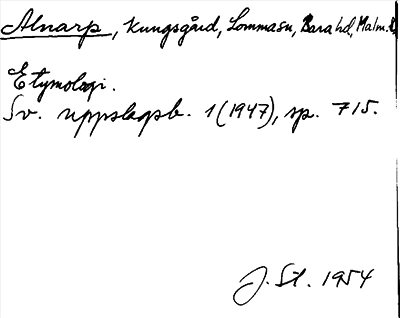 Alnarp, Kungsgård, Lomma sn, Bara hd, Malm. l.
Etymologi.
Sv. uppslagsb. 1 (1947), sp. 715.
J. St. 1954